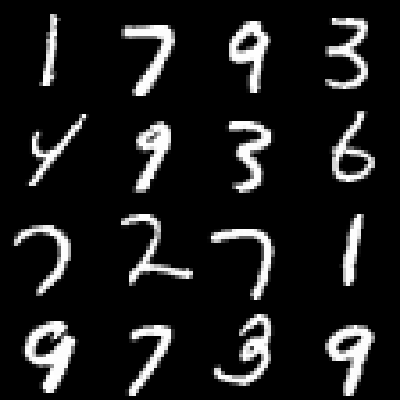 1 7 9 3
4 9 3 6
7 2 7 1
9 7 3 9